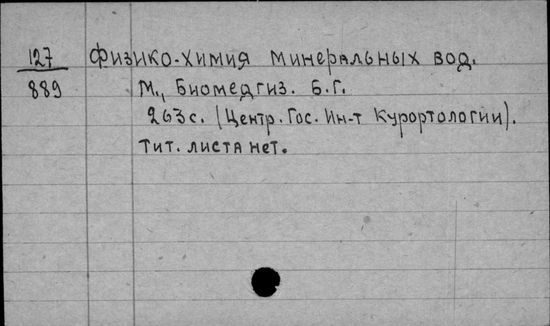 127 Физико-химия минеральных вод.
889 М., Биомедгиз. Б.Г.
263с. (Центр. Гос. Ин-т Курортологии).
Тит. листа нет.